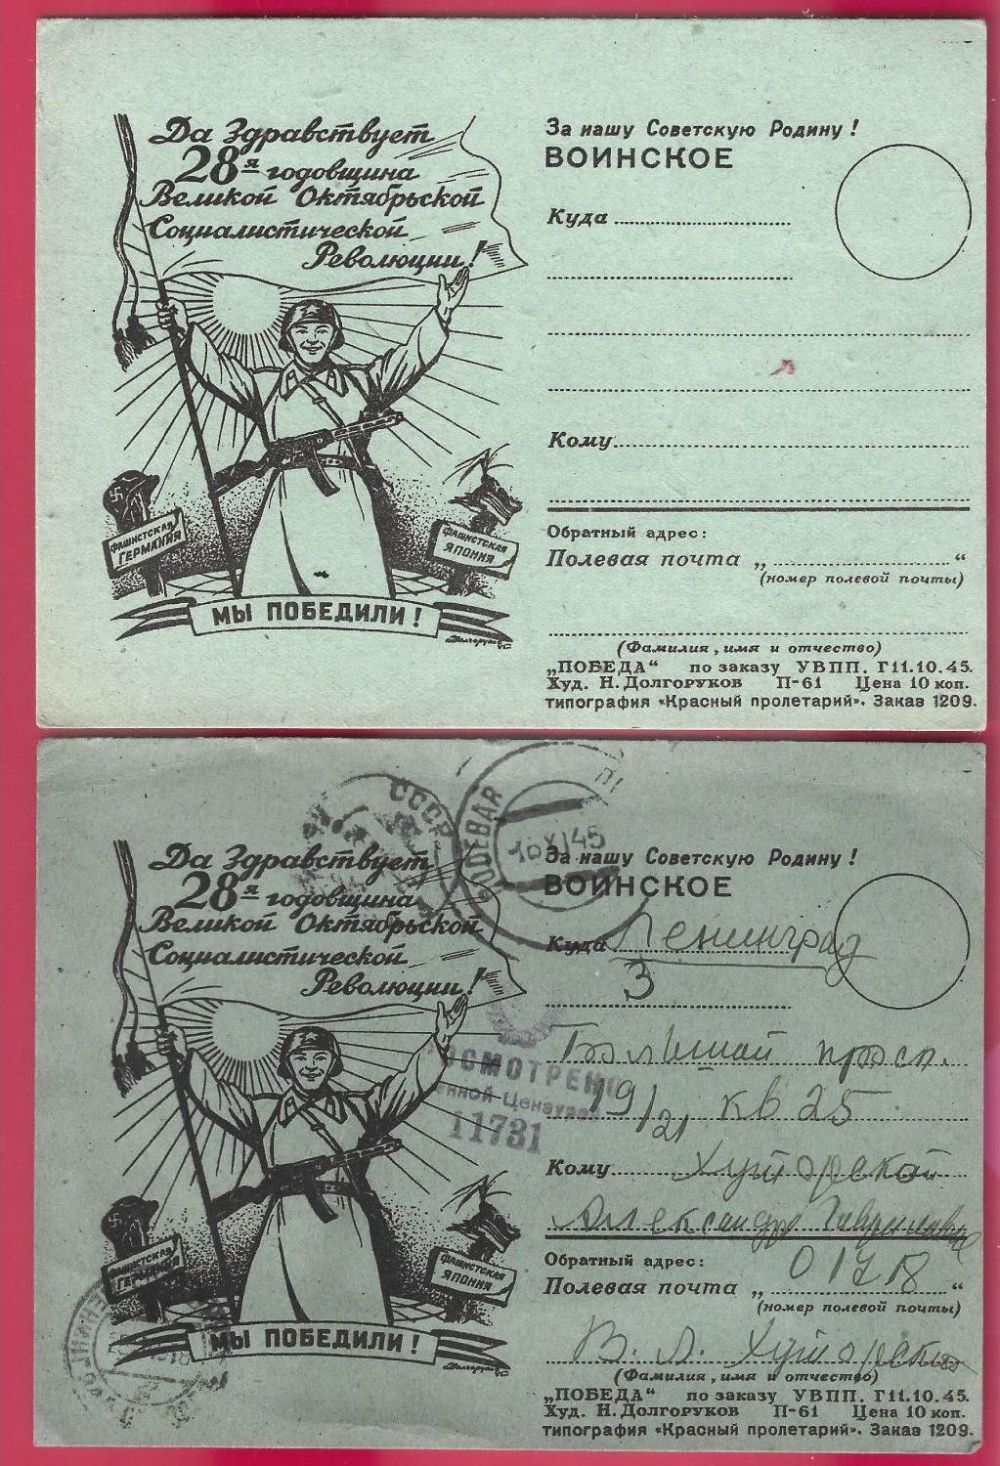 Да Здравствует
28я годовщина
Великой Октябрьской
Социалистической
Революции!
ФАШИСТСКАЯ
ГЕРМАНИЯ
ФАШИСТСКАЯ
ЯПОНИЯ
МЫ ПОБЕДИЛИ!
За нашу Советскую Родину!
ВОИНСКОЕ
Куда
Кому
Обратный адрес:
Полевая почта „ “
(номер полевой почты)
(Фамилия, имя и отчество)
„ПОБЕДА“ по заказу УВПП. Г11.10.45.
Худ. Н. Долгоруков П-61 Цена 10 коп.
типография «Красный пролетарий». Заказ 1209.
Да Здравствует
28я годовщина
Великой Октябрьской
Социалистической
Революции!
ФАШИСТСКАЯ
ГЕРМАНИЯ
ФАШИСТСКАЯ
ЯПОНИЯ
МЫ ПОБЕДИЛИ!
СССР
XI 45
ПРОСМОТРЕНО
Военной Цензурой
11731
За нашу Советскую Родину!
ВОИНСКОЕ
Куда Ленинград
3
Большой просп.
19/21 кв 25
Кому Хуторской
Обратный адрес:
Полевая почта „ “
(номер полевой почты)
В. Л.
(Фамилия, имя и отчество)
„ПОБЕДА“ по заказу УВПП. Г11.10.45.
Худ. Н. Долгоруков П-61 Цена 10 коп.
типография «Красный пролетарий». Заказ 1209.